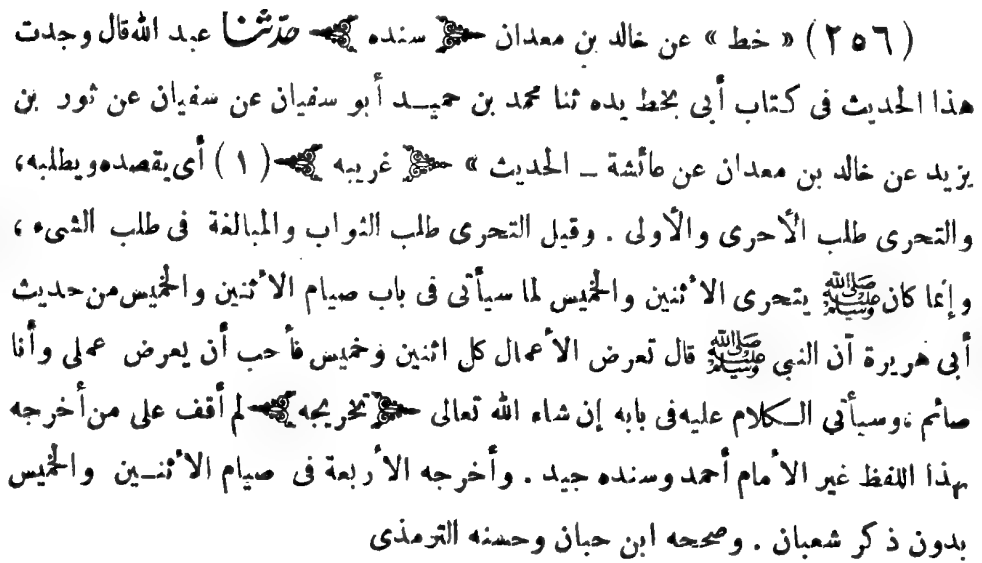 (٢٥٦) « خط » عن خالد بن معدان ﴿ سنده ﴾ حدّثنا عبد الله قال وجدت
هذا الحديث فى كتاب أبى بخط يده ثنا محمد بن حميد أبو سفيان عن سفيان عن ثور بن
يزيد عن خالد بن معدان عن عائشة – الحديث » ﴿ غريبه ﴾ ( ١ ) أى يقصده ويطلبه،
والتحرى طلب الأحرى والأولى . وقيل التحرى طلب الثواب والمبالغة فى طلب الشىء ،
وإنما كان ﷺ يتحرى الأثنين والخميس لما سيأتى فى باب صيام الأثنين والخميس من حديث
أبى هريرة أن النبى ﷺ قال تعرض الأعمال كل اثنين وخميس فأحب أن يعرض عملى وأنا
صائم ،وسيأتي الكلام عليه فى بابه إن شاء الله تعالى ﴿ تخريجه ﴾ لم أقف على من أخرجه
بهذا اللفظ غير الأمام أحمد وسنده جيد . وأخرجه الأربعة فى صيام الأثنين والخميس
بدون ذكر شعبان . وصححه ابن حبان وحسنه الترمذى